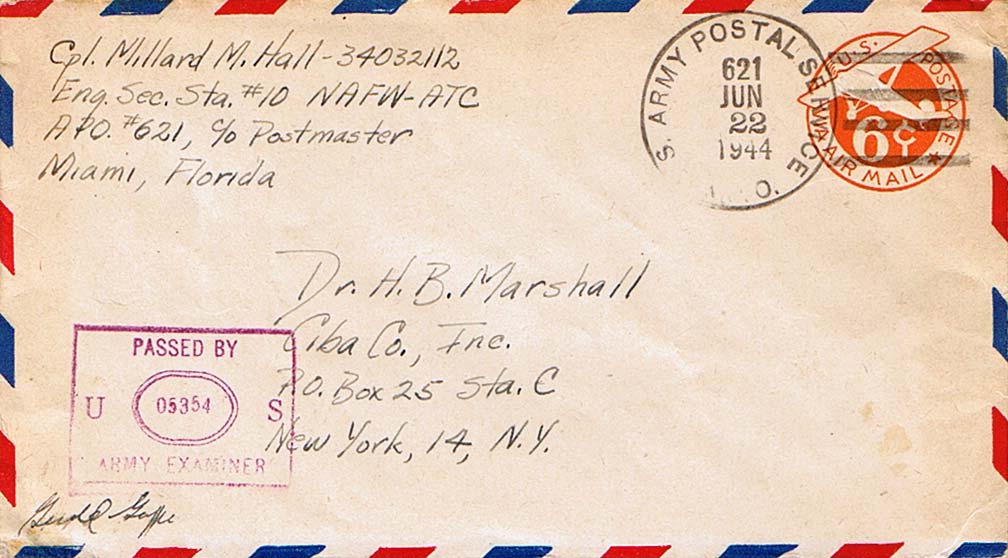 Cpl. Millard M. Hall - 34032112
Eng. Sec. Sta. #10 NAFW-ATC
A.P.O. #621, c/o Postmaster
Miami, Florida
S. ARMY POSTAL SERVICE
621
JUN
22
1944
P.O.
U.S. POSTAGE
6¢
VIA AIR MAIL
Dr. H. B. Marshall
Ciba Co., Inc.
P.O. Box 25 Sta. C
New York, 14, N.Y.
PASSED BY
U 05354 S
ARMY EXAMINER